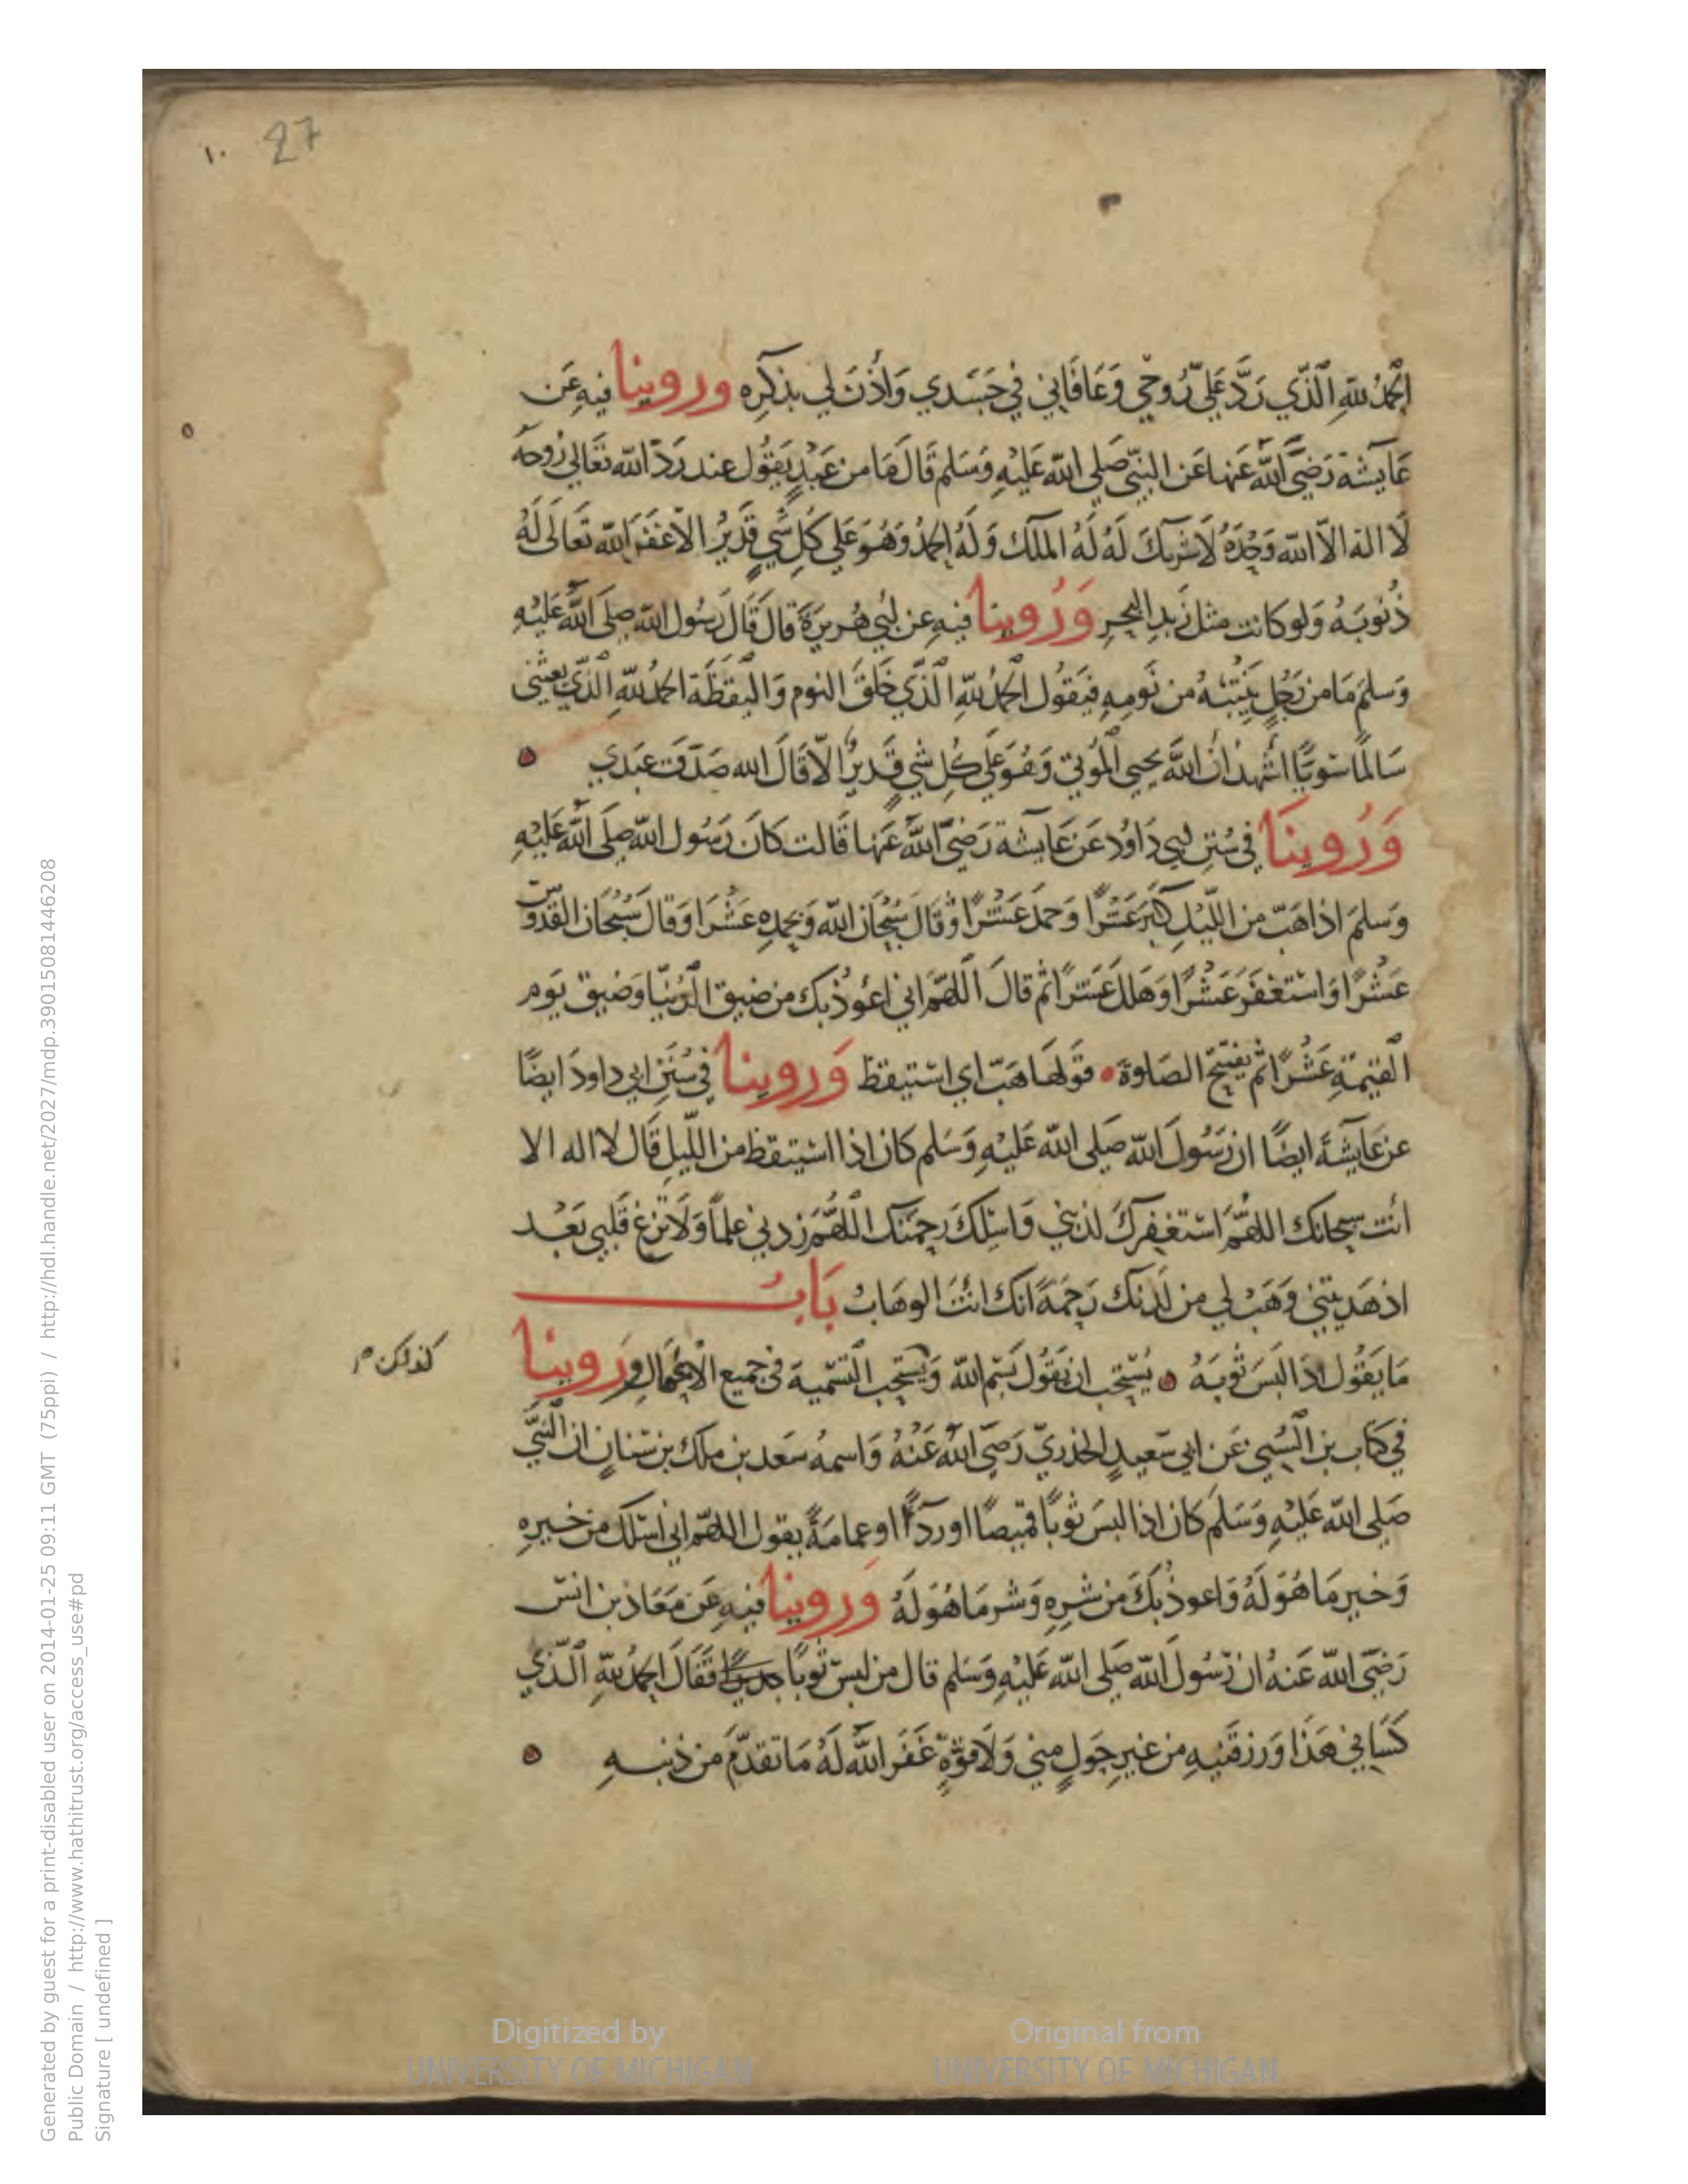 27 ١٠
الحَمْدُ للهِ الَّذي رَدَّ عَلَيَّ رُوحِي وَعَافَاني في جَسَدي وَاَذِنَ لي بذِكرِه وروينا فيهِ عَن
عَايشة رَضيَ اللهُ عَنها عَن النبيّ صَلى الله عَليْهِ وَسَلم قَالَ مَا من عَبْدٍ يَقُول عند رَدّ الله تعَالى رُوحَه
لَا اله الاّ الله وَحْدَهُ لَا شريكَ لَهُ لَهُ الملك وَلَهُ الحمدُ وَهُوَ عَلى كلِ شَيٍ قَديرُ الّا غفَرَ الله تَعَالَى لَهُ
ذُنوبَهُ وَلو كانت مثل زَبدِ البحرِ وَرُوينا فيهِ عن ابي هُريرَةَ قالَ قَالَ رَسُول الله صلى اللهُ عَليْهِ
وَسلم مَا من رَجُلٍ يَنتبهُ من نَومِهِ فيَقُول الحمدُ للهِ الَّذي خَلقَ النوم وَاليَقظَة الحمدُ للهِ الَّذي بَعثني
سَالمًا سَويًّا اشهدُ انَّ اللهَ يحيي المَوْتي وَهُوَ عَلَي كُلِ شَيٍ قَديرٌ الّا قَالَ الله صَدَقَ عَبَدي
وَرُوينَا في سُنَنِ ابي دَاوُد عَن عَايشة رَضيَ اللهُ عَنها قَالت كانَ رَسُول الله صلى اللهُ عَليْهِ
وَسلمَ اذا هَبّ من اللّيْلِ كَبَّرَ عَشْرًا وَحمدَ عَشْرًا وَقالَ سُبْحَانَ الله وَبحمدِهِ عَشْرًا وَقالَ سُبْحَان القدوس
عَشْرًا وَاسْتَغفَرَ عَشْرًا وَهَللَ عَشْرًا ثم قالَ اَللهُمّ اني اعُوذُ بكَ من ضيق الدُّنيَا وَضيق يَوم
القيمَةِ عَشْرًا ثم يفتتح الصَلوةَ قوَلها هَبّ اي استيقظ وَروينا في سُنَنِ ابي داودَ ايضًا
عن عَايشَةَ ايضًا ان رَسُولَ الله صَلى الله عَليْهِ وَسَلم كان اذا استيقظ من اللّيلِ قَالَ لا اله الا
انْت سبحانك اللهُمّ اَستَغفِركَ لذنبي وَاسئلكَ رَحمتَك اللهُمّ زدني علمًا وَلَا تزغ قَلبي بَعْد
اذ هَديتَني وَهَبْ لي من لَدنك رَحمَةً انك انْتَ الوهَابُ بَابُ
مَا يَقُول اذا لَبَسَ ثَوبَهُ يُستحَب ان يَقُول بسْم الله وَيستحَب التَسْميَة في جميع الاعمَال وَروينا
كذلك م
في كتَاب بن السُني عَن ابي سَعيدٍ الخدري رَضيَ اللهُ عَنهُ وَاسمهُ سَعد بن ملك بن سنانٍ ان النبَيَّ
صَلى الله عَليْهِ وَسَلم كَان اذا لبسَ ثوبًا قميصًا او ردآءً او عمامَةً يقول اللهُمّ اني اسئلك من خيرِه
وَخير مَا هُوَ لَهُ وَاعوذُ بكَ من شرِهِ وَشر مَا هُوَ لَهُ وَروينا فيهِ عَن مَعَاذ بن انس
رَضيَ الله عَنهُ ان رَسُولَ الله صَلى الله عَليْهِ وَسَلم قال من لبسَ ثوبًا جديدًا فَقَالَ الحمدُ للهِ الَّذي
كَسَاني هَذَا وَرزقَنيهِ من غيرِ حَولٍ مني وَلَا قوَّةٍ غَفَرَ اللهُ لَهُ مَا تقدّم من ذنبهِ
Digitized by
UNIVERSITY OF MICHIGAN
Original from
UNIVERSITY OF MICHIGAN
Generated by guest for a print-disabled user on 2014-01-25 09:11 GMT (75ppi) / http://hdl.handle.net/2027/mdp.39015081446208
Public Domain / http://www.hathitrust.org/access_use#pd
Signature [ undefined ]